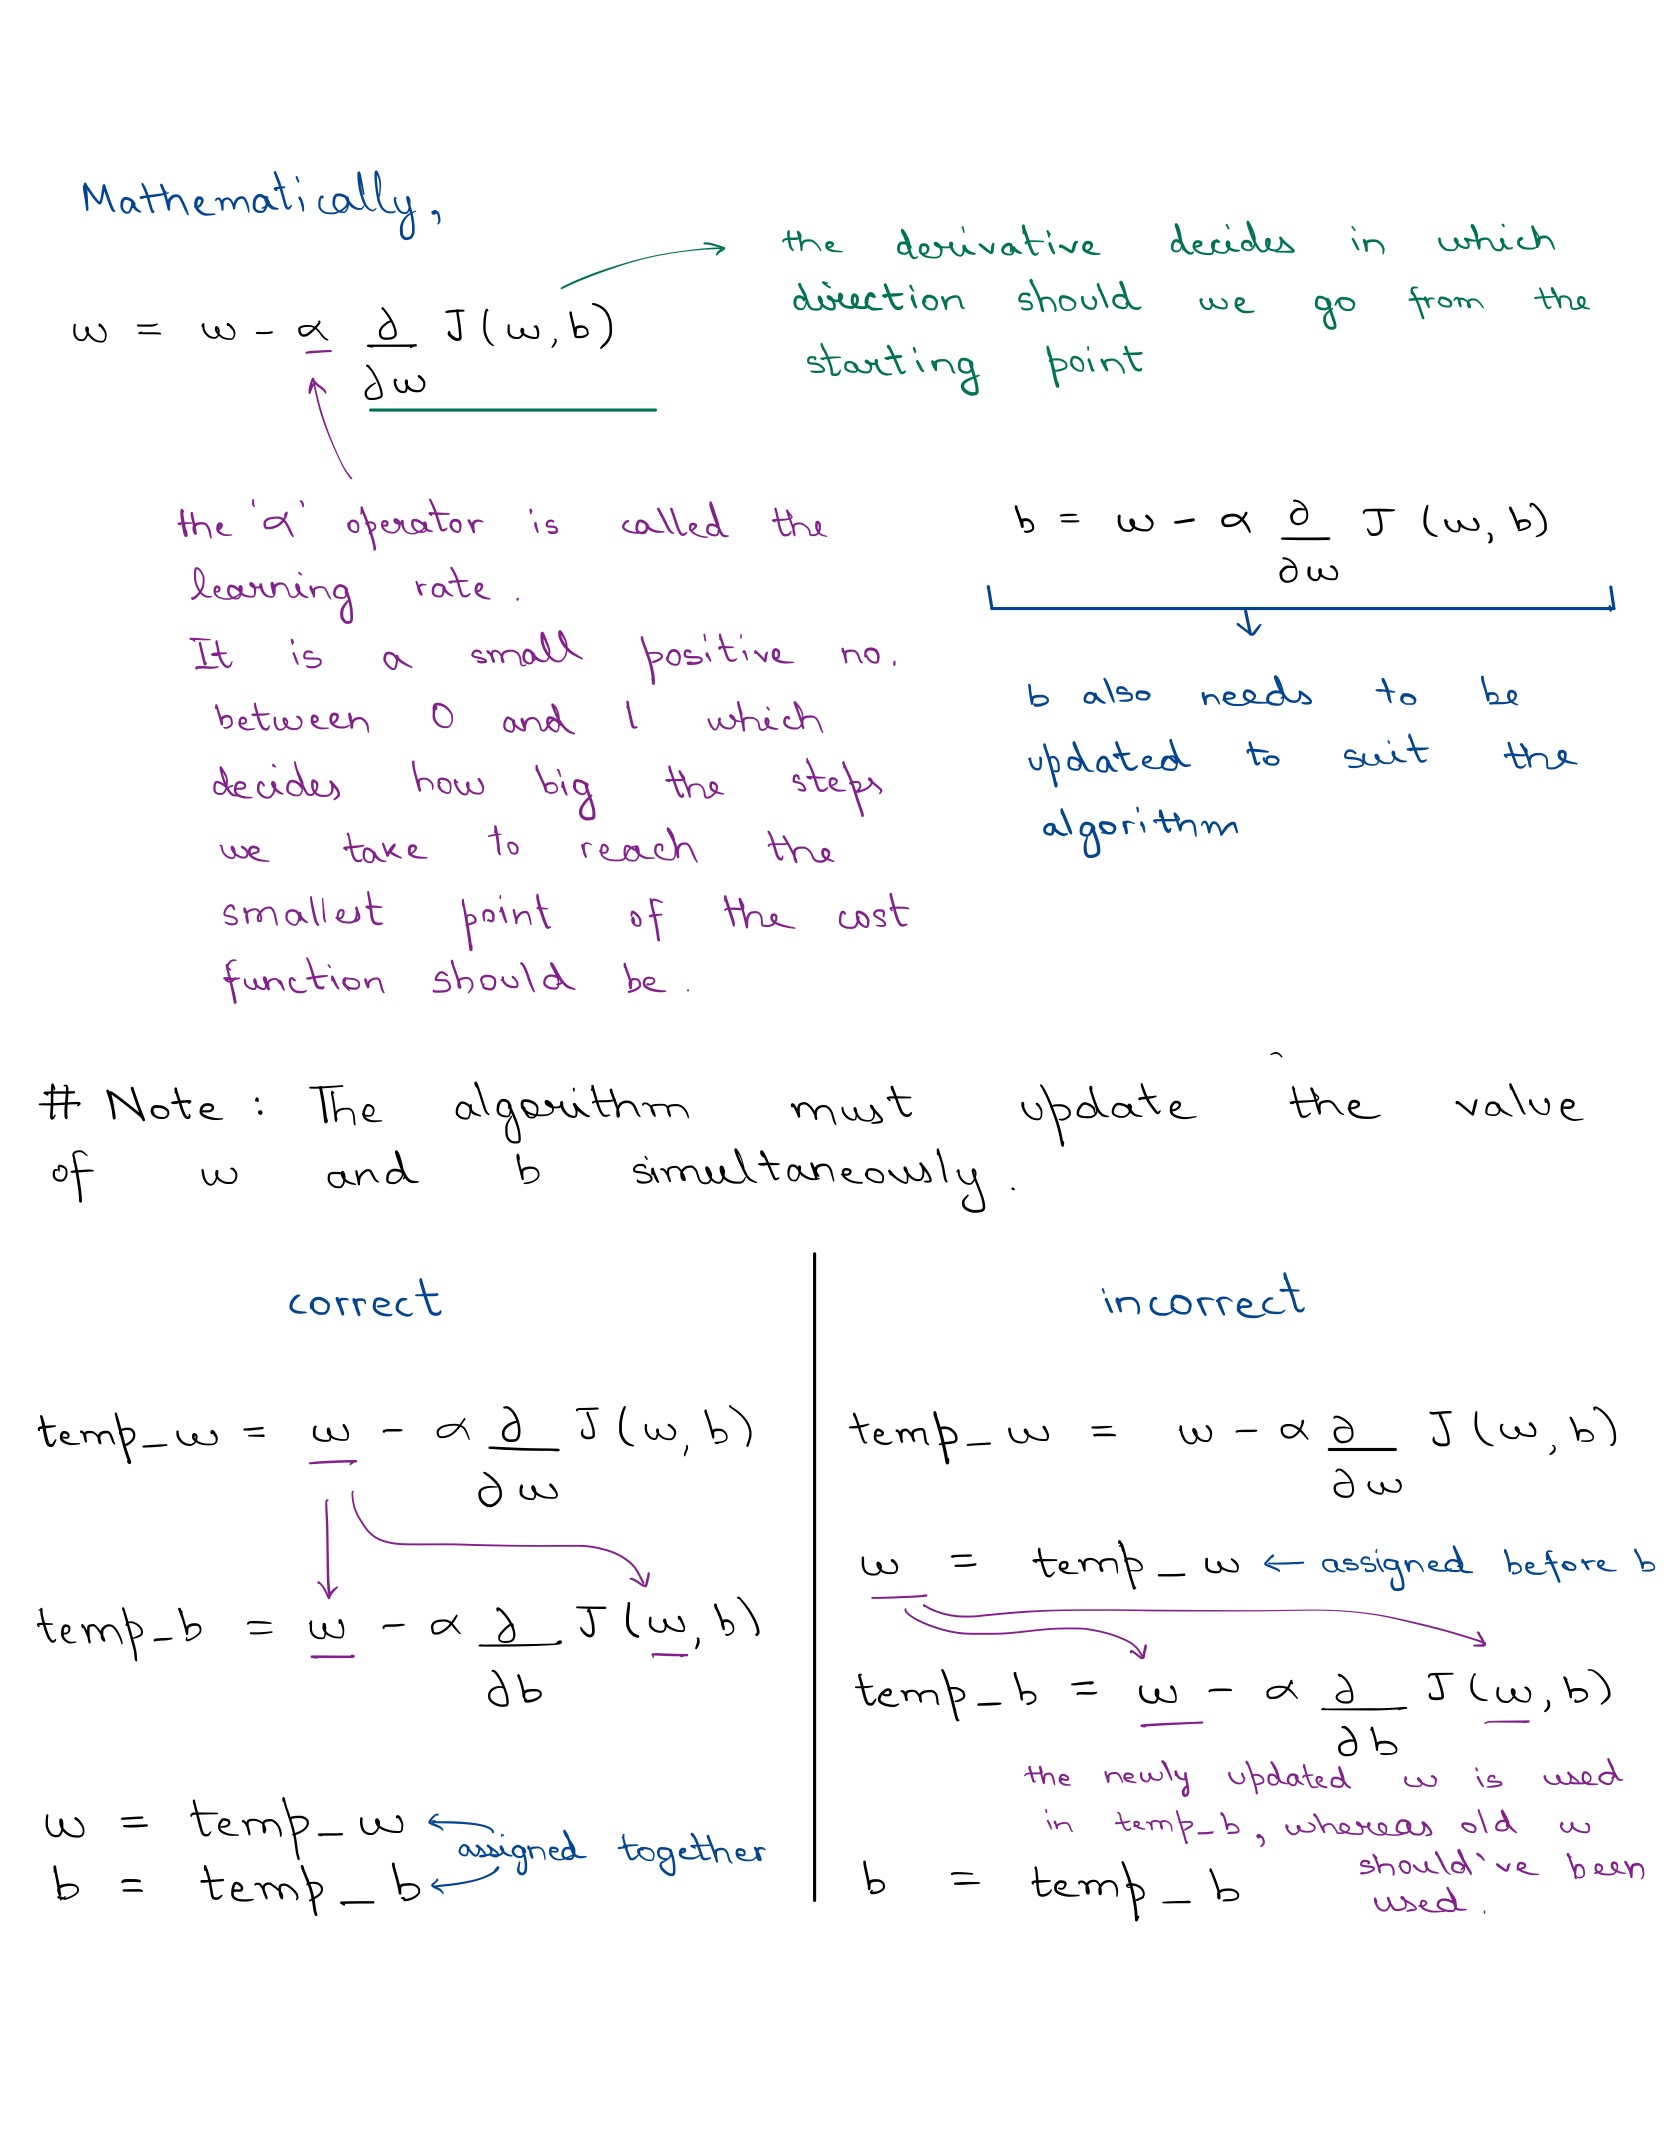 Mathematically,
the derivative decides in which
direction should we go from the
starting point
w = w - α ∂/∂w J(w, b)
the 'α' operator is called the
learning rate.
It is a small positive no.
between 0 and 1 which
decides how big the steps
we take to reach the
smallest point of the cost
function should be.
b = w - α ∂/∂w J (w, b)
b also needs to be
updated to suit the
algorithm
# Note : The algorithm must update the value
of w and b simultaneously.
correct
temp_w = w - α ∂/∂w J(w, b)
temp_b = w - α ∂/∂b J(w, b)
w = temp_w
assigned together
b = temp_b
incorrect
temp_w = w - α ∂/∂w J(w, b)
w = temp_w ← assigned before b
temp_b = w - α ∂/∂b J(w, b)
the newly updated w is used
in temp_b, whereas old w
should've been
used.
b = temp_b